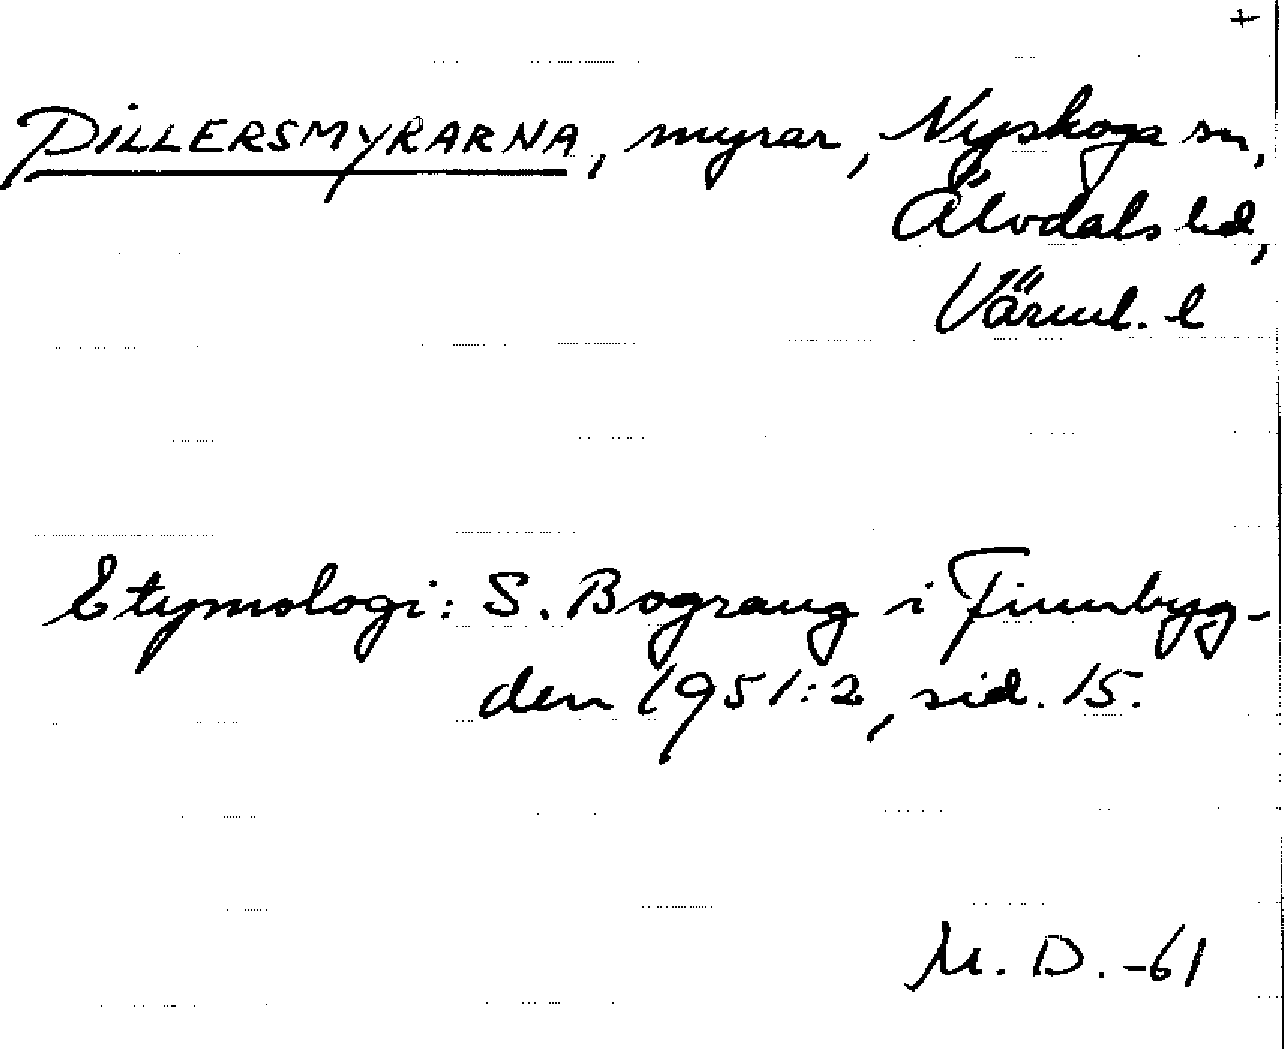 +
DILLERSMYRARNA, myrar, Nyskoga sn,
Älvdals hd,
Värml. l
Etymologi: S. Bograng i Finnbyg-
den 1951:2, sid. 15.
M. D. -61